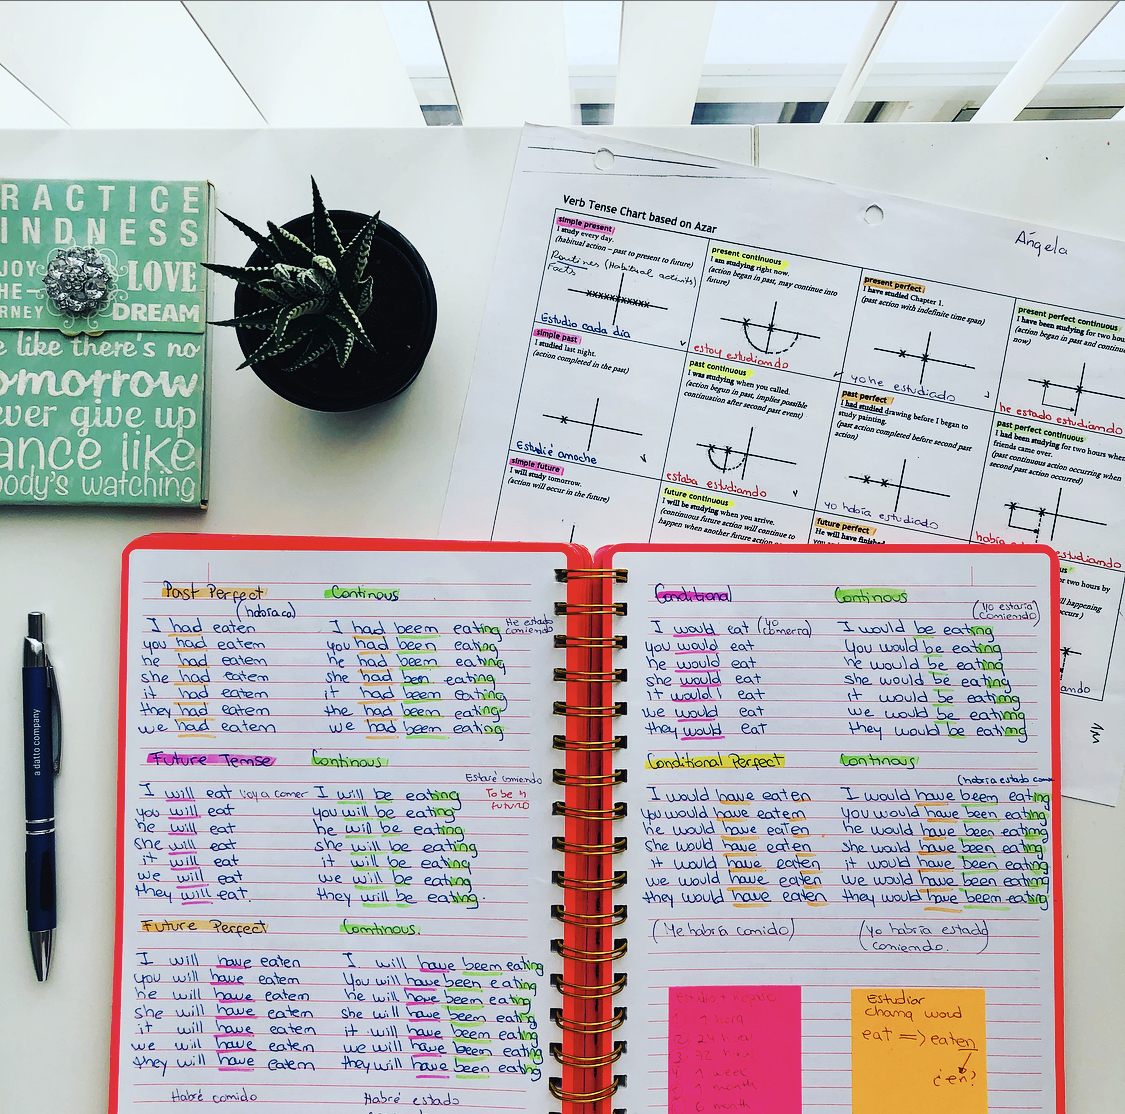 RACTICE
INDNESS
JOY
HE
RNEY
LOVE
DREAM
e like there's no
omorrow
ever give up
ance like
body's watching
a datto company
Verb Tense Chart based on Azar
Ángela
simple present
I study every day.
(habitual action – past to present to future)
Routines (Habitual activits)
Facts
Estudio cada día
present continuous
I am studying right now.
(action began in past, may continue into
future)
estoy estudiando
present perfect
I have studied Chapter 1.
(past action with indefinite time span)
yo he estudiado
present perfect continuous
I have been studying for two hou
(action began in past and continue
now)
he estado estudiando
simple past
I studied last night.
(action completed in the past)
Estudié anoche
past continuous
I was studying when you called.
(action began in past, implies possible
continuation after second past event)
estaba estudiando
past perfect
I had studied drawing before I began to
study painting.
(past action completed before second past
action)
yo había estudiado
past perfect continuous
I had been studying for two hours when
friends came over.
(past continuous action occurring when
second past action occurred)
había
estudiando
simple future
I will study tomorrow.
(action will occur in the future)
future continuous
I will be studying when you arrive.
(continuous future action will continue to
happen when another future action
future perfect
He will have finished
us
or two hours by
ll happening
occurs)
ando
Past Perfect
(había co)
I had eaten
you had eatem
he had eatem
she had eatem
it had eatem
they had eatem
we had eatem
Continous
He estado
comiendo
I had beem eating
you had been eating
he had beem eating
she had ben eating
it had beem eating
the had beem eating
we had beem eating
Future Temse
I will eat
you will eat
he will eat
she will eat
it will eat
we will eat
they will eat.
Voy a comer
Continous
Estaré comiendo
To be n
futuro
I will be eating
you will be eating
he will be eating
she will be eating
it will be eating
we will be eating
they will be eating.
Future Perfect
I will have eaten
you will have eatem
he will have eatem
she will have eatem
it will have eatem
we will have eatem
they will have eatem
Habré comido
Comtinous.
I will have beem eating
You will have been eating
he will have been eating
she will have been eating
it will have been eating
we will have been eating
they will have been eating
Habré estado
Conditional
I would eat (yo
comería)
you would eat
he would eat
she would eat
it would eat
we would eat
they would eat
Continous
(Yo estaría
comiendo)
I would be eating
You would be eating
he would be eating
she would be eating
it would be eating
we would be eating
they would be eating
Conditional Perfect
I would have eaten
you would have eatem
he would have eaten
she would have eaten
it would have eaten
we would have eaten
they would have eaten
(Me habría comido)
Continous
(habría estado come
I would have beem eating
You would have been eating
he would have been eating
she would have been eating
it would have been eating
We would have been eating
they would have beem eating
(Yo habría estado
comiendo.)
1 week
1 month
6 month
Estudiar
chang word
eat => eaten
¿en?